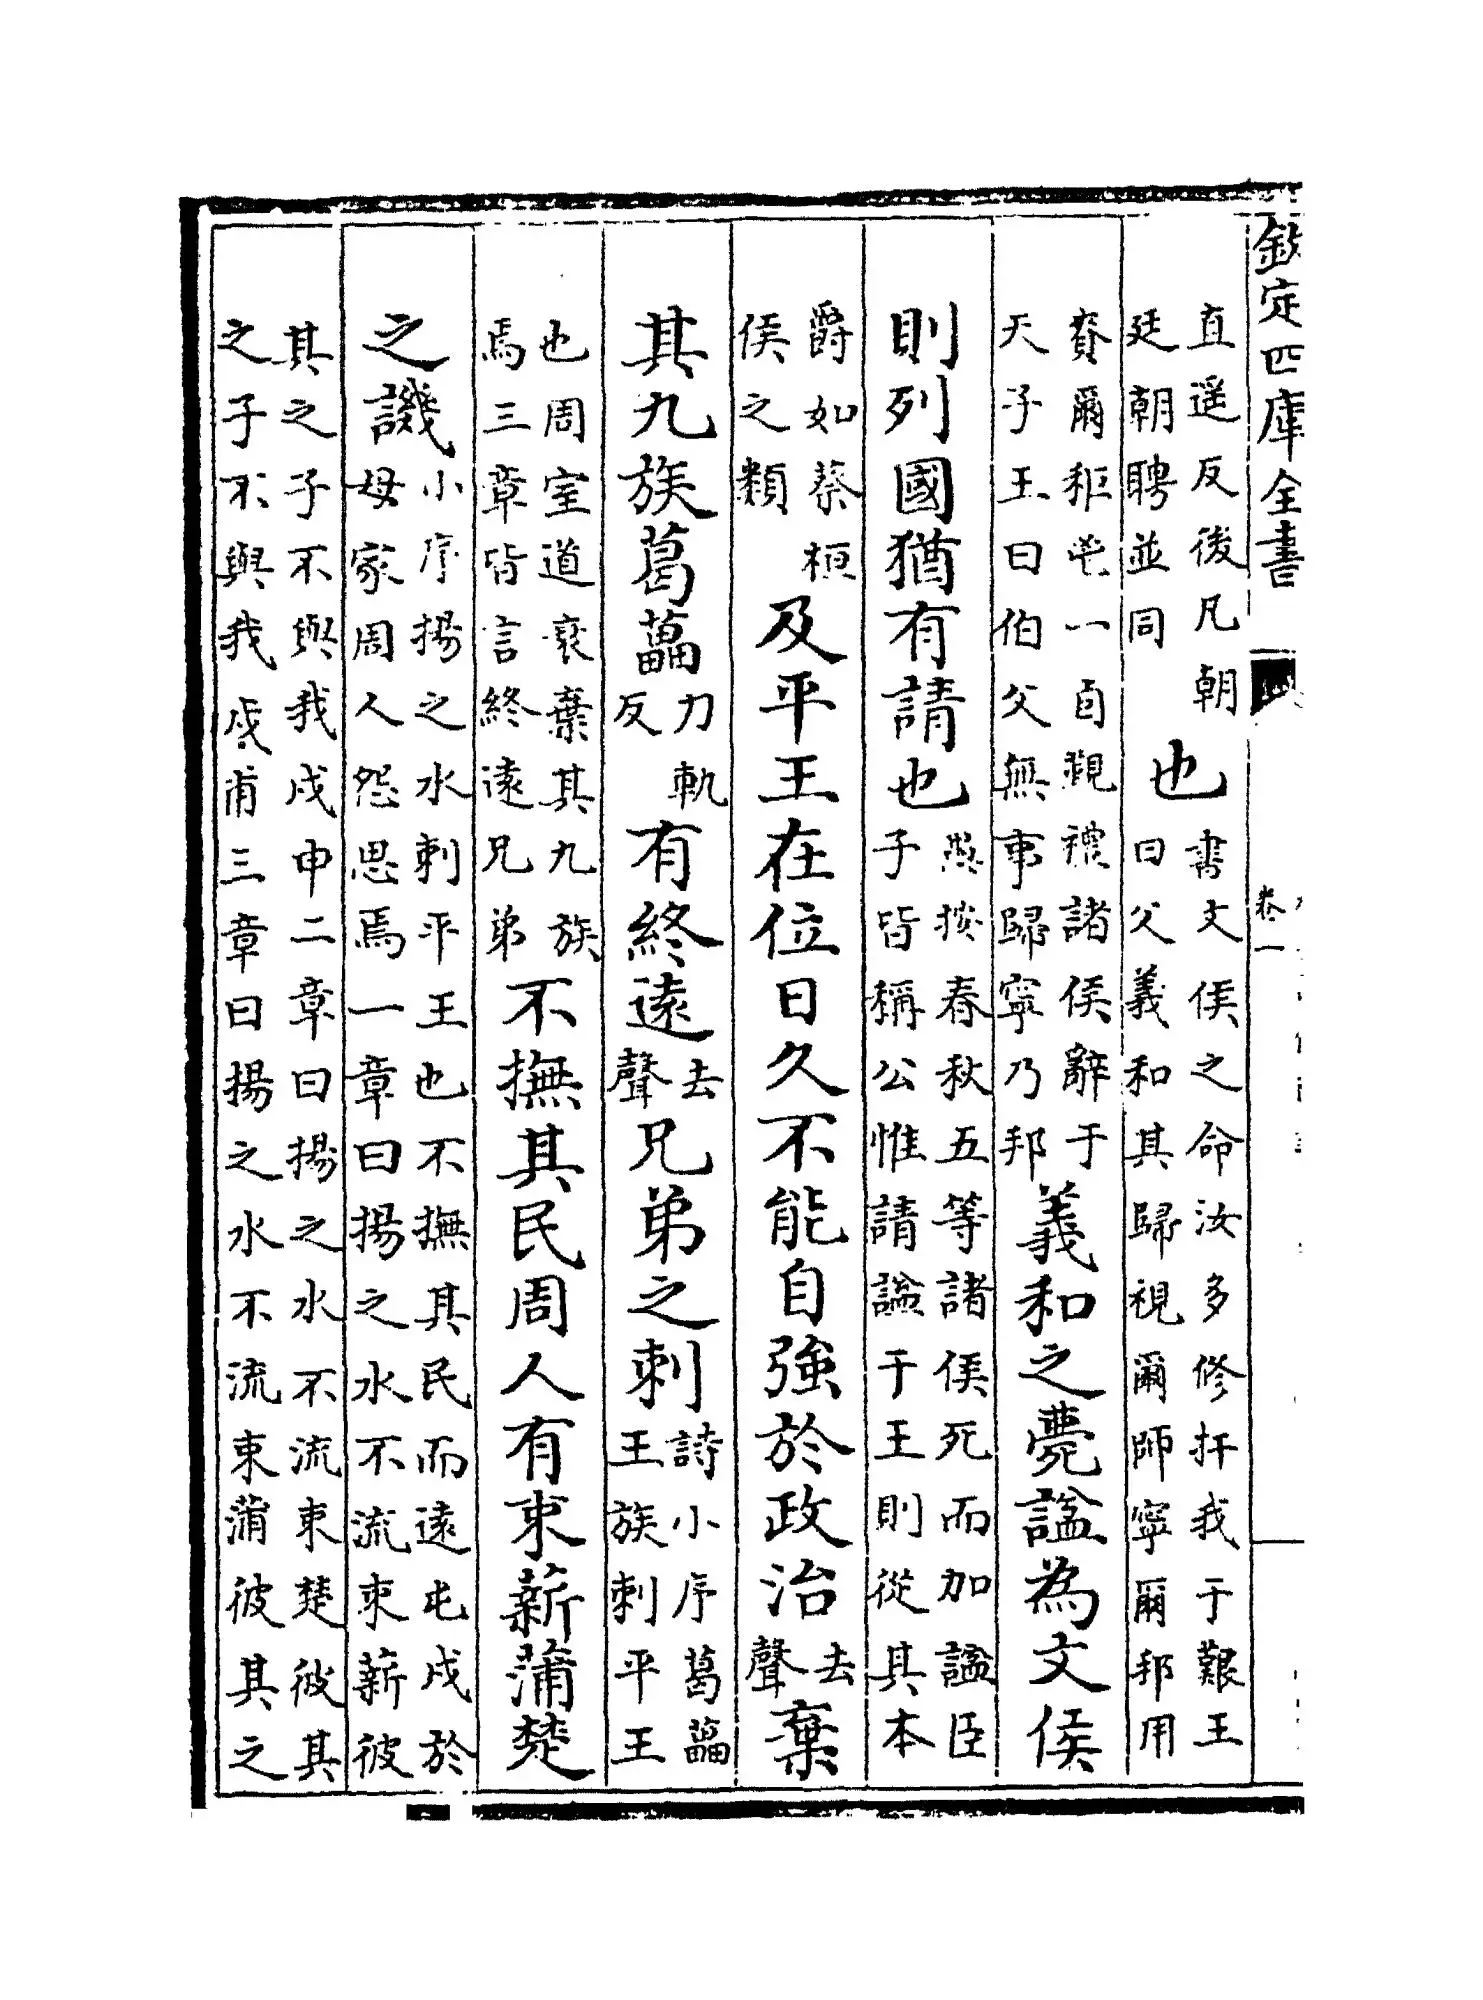 欽定四庫全書
卷一
直遥反後凡朝廷朝聘並同也書文侯之命汝多修扞我于艱王曰父義和其歸視爾師寧爾邦用
賚爾秬鬯一卣覲禮諸侯辭于天子王曰伯父無事歸寧乃邦義和之薨諡為文侯
則列國猶有請也愚按春秋五等諸侯死而加諡臣子皆稱公惟請諡于王則從其本
爵如蔡桓侯之類及平王在位日久不能自強於政治去聲棄
其九族葛藟力軌反有終遠去聲兄弟之刺詩小序葛藟王族刺平王
也周室道衰棄其九族焉三章皆言終遠兄弟不撫其民周人有束薪蒲楚
之譏小序揚之水刺平王也不撫其民而遠屯戍於母家周人怨思焉一章曰揚之水不流束薪彼
其之子不與我戍申二章曰揚之水不流束楚彼其之子不與我戍甫三章曰揚之水不流束蒲彼其之